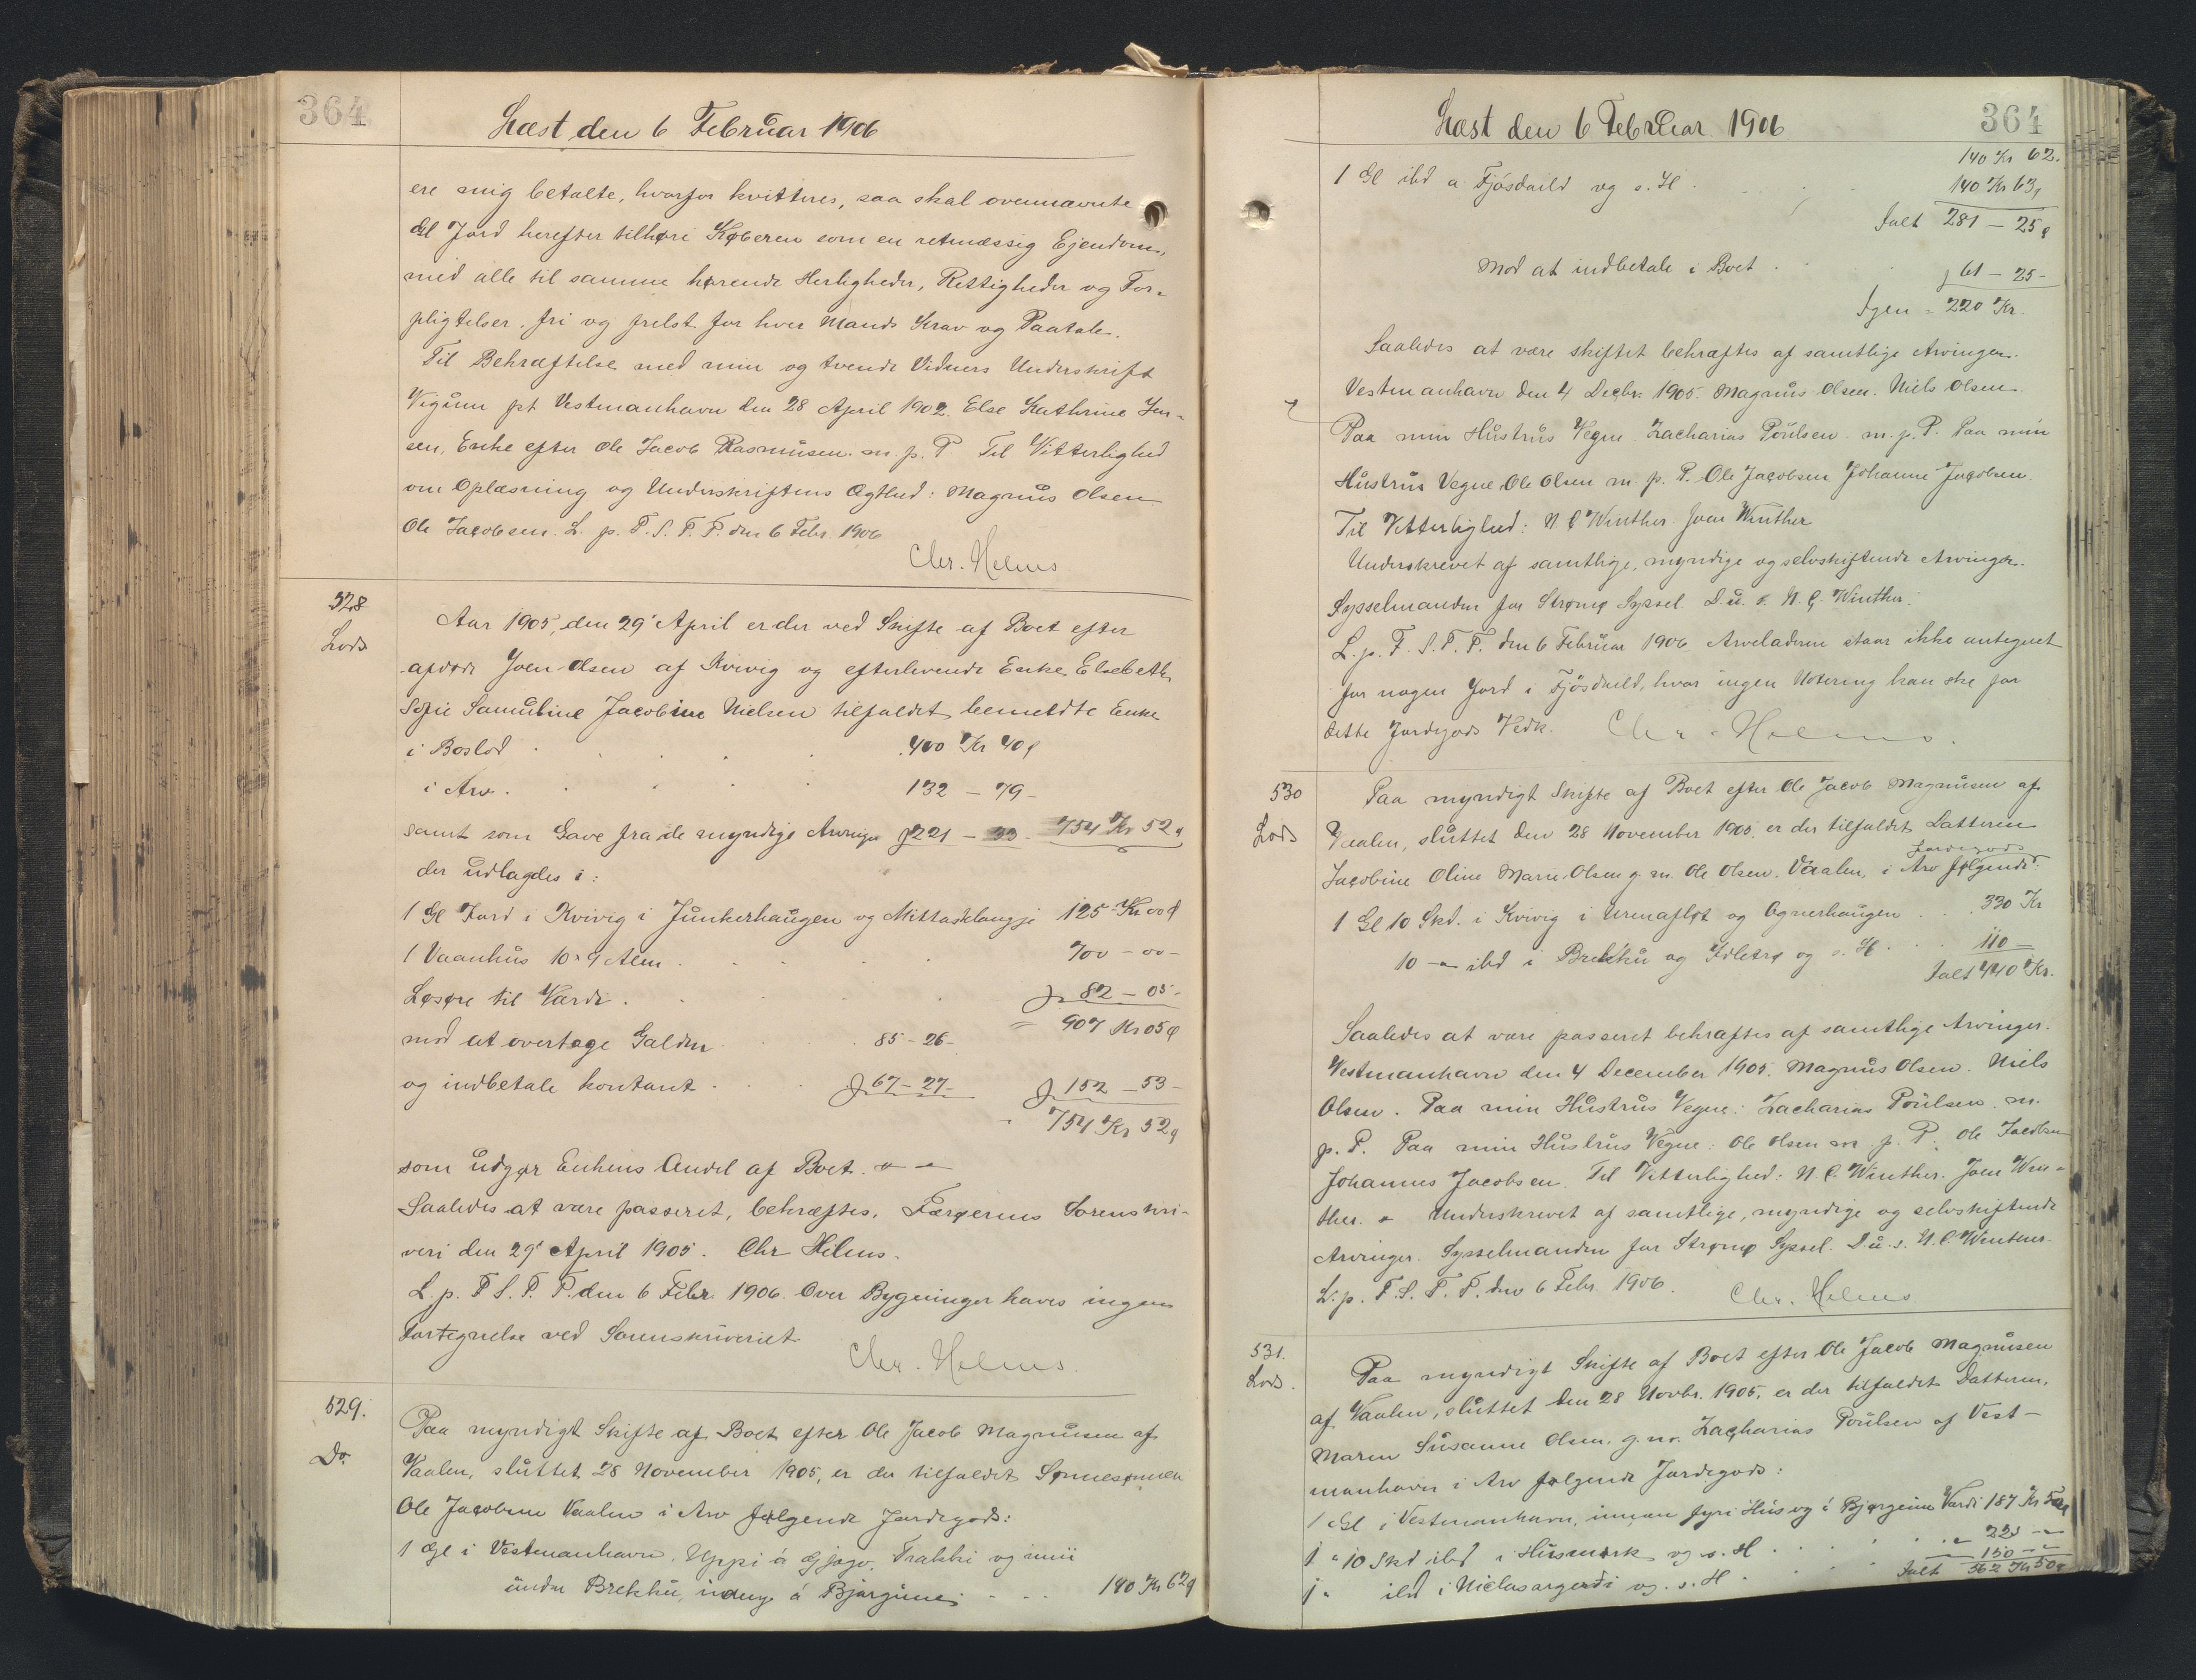 364
Læst den 6 Februar 1906
ere mig betalte, hvorfor kvitteres, saa skal ovennævnte
Gl Jord herefter tilhøre Køberen som en retmæssig Ejendom,
med alle til samme hørende Herligheder, Rettigheder og For-
pligtelser, fri og frelst for hver Mands Krav og Paatale.
Til Bekræftelse med min og tvende Vidners Underskrift
Vigum pt Vestmanhavn den 28 April 1902. Else Kathrine Jen-
sen, Enke efter Ole Jacob Rasmusen m. p. P Til Vitterlighed
om Oplæsning og Underskriftens Ægthed: Magnus Olsen
Ole Jacobsen. L. p. F. S. T. P. den 6 Febr. 1906
Chr. Helms
528
Lods
Aar 1905, den 29' April er der ved Skifte af Boet efter
afdøde Joen Olsen af Kvivig og efterlevende Enke Elsebeth
Sofie Samuline Jacobine Nielsen tilfaldet bemeldte Enke
i Boslod . . . . 400 Kr 40 ø
i Arv . . . . 132 - 79 -
samt som Gave fra de myndige Arvinger 221 - 33 - 754 Kr 52 ø
der udlagdes i:
1 Gl Jord i Kvivig i Junkerhaugen og Mittasklangji 125 Kr 00 ø
1 Vaanhus 10 x 9 Alen . . . 700 - 00 -
Løsøre til Værdi . . . 82 - 05 -
= 907 Kr 05 ø
mod at overtage Gælden . . 85 - 26 -
og indbetale kontant . . 67 - 27 - 152 - 53 -
754 Kr 52 ø
som udgør Enkens Andel af Boet.
Saaledes at være passeret, bekræftes. Færøernes Sorenskri-
veri den 29' April 1905. Chr Helms.
L. p. F S. T. P. den 6 Febr. 1906. Over Bygninger haves ingen
Fortegnelse ved Sorenskriveriet
Chr. Helms.
529.
Do.
Paa myndigt Skifte af Boet efter Ole Jacob Magnusen af
Vaalen, sluttet 28 November 1905, er der tilfaldet Sønnesønnen
Ole Jacobsen Vaalen i Arv følgende Jordegods:
1 Gl i Vestmanhavn, Uppi á Gjógv, Trakki og inni
undir Brekku, á Bjørgum . . . 140 Kr 62 ø
Læst den 6 Februar 1906
364
140 Kr 62.
1 Gl ibd a Fjósduld og s. H . . . 140 Kr 63 ø
Ialt 281 - 25 ø
Mod at indbetale i Boet . . . 61 - 25 -
Igen = 220 Kr.
Saaledes at være skiftet bekræftes af samtlige Arvinger.
Vestmanhavn den 4 Decbr. 1905. Magnus Olsen. Niels Olsen.
Paa min Hustrus Vegne. Zacharias Poulsen m. p. P. Paa min
Hustrus Vegne Ole Olsen m. p. P. Ole Jacobsen Johanne Jacobsen.
Til Vitterlighed: N C Winther. Joen Winther
Underskrevet af samtlige, myndige og selvskiftende Arvinger.
Sysselmanden for Strømø Syssel. D. u. s. N. C. Winther.
L. p. F. S. T. P. den 6 Februar 1906 Arveladeren staar ikke antegnet
for nogen Jord i Fjósduld, hvor ingen Notering kan ske for
dette Jordegods Vedk. Chr. Helms.
530
Lods
Paa myndigt Skifte af Boet efter Ole Jacob Magnusen af
Vaalen, sluttet den 28 November 1905. er der tilfaldet Datteren
Jordegods
Jacobine Oline Marie Olsen g. m. Ole Olsen. Vaalen, i Arv følgende:
1 Gl 10 Skd. i Kvivig i Urenafløt og Ognerhaugen . . . 330 Kr
10 - ibd i Brekku og og s. H . . . 110 -
Ialt 440 Kr.
Saaledes at være passeret bekræftes af samtlige Arvinger.
Vestmanhavn den 4 December 1905. Magnus Olsen. Niels
Olsen. Paa min Hustrus Vegne: Zacharias Poulsen. m.
p. P. Paa min Hustrus Vegne: Ole Olsen m. p. P. Ole Jacobsen
Johannes Jacobsen. Til Vitterlighed: N. C. Winther. Joen Win-
ther. Underskrevet af samtlige, myndige og selvskiftende
Arvinger. Sysselmanden for Strømø Syssel. D. u. s. N. C. Winther.
L. p. F. S. T. P. den 6 Febr. 1906. Chr. Helms
531.
Lods.
Paa myndigt Skifte af Boet efter Ole Jacob Magnusen
af Vaalen, sluttet den 28 Novbr. 1905, er der tilfaldet Datteren,
Maren Susanne Olsen. g. m. Zacharias Poulsen af Vest-
manhavn i Arv følgende Jordegods:
1 Gl i Vestmanhavn, innan fyri Hus og á Bjørgum Værdi 187 Kr 50 ø
1 " 10 Skd ibd i Húsmørk og s. H . . . 225 -
1 " ibd i Niclasargerdi og. s. H . . . 150 -
Ialt 562 Kr 50 ø